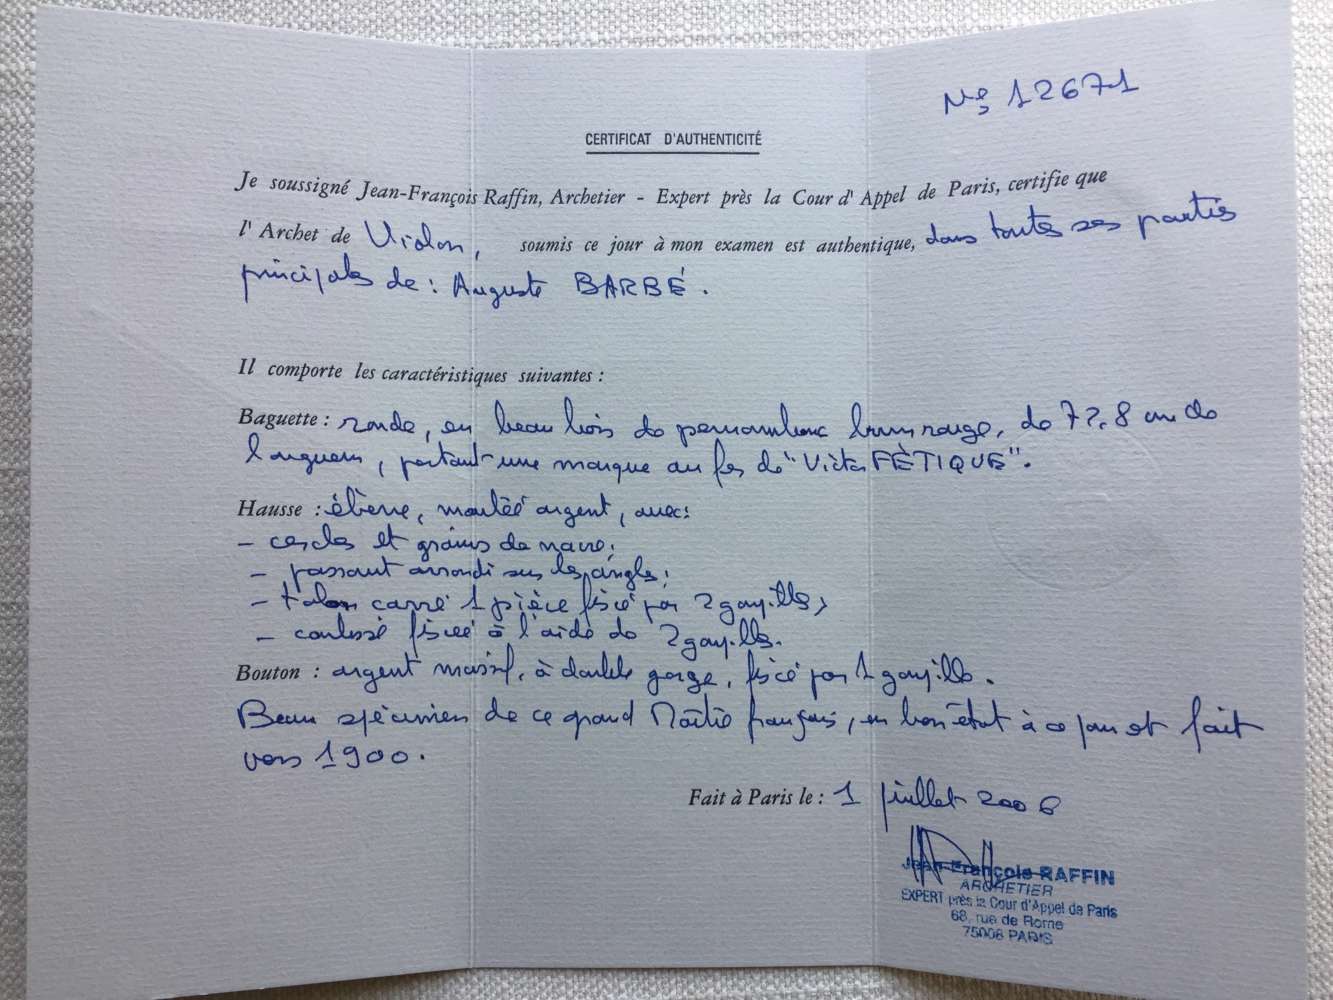 Nº 12671
CERTIFICAT D'AUTHENTICITÉ
Je soussigné Jean-François Raffin, Archetier - Expert près la Cour d'Appel de Paris, certifie que
l'Archet de Violon, soumis ce jour à mon examen est authentique, dans toutes ses parties
principales de : Auguste BARBÉ.
Il comporte les caractéristiques suivantes :
Baguette : ronde, en beau bois de pernambouc brun rouge, de 72,8 cm de
longueur, portant une marque au fer de "Victor FÉTIQUE".
Hausse : ébène, montée argent, avec :
- cercles et grains de nacre;
- passant arrondi sur les angles;
- talon carré 1 pièce fixé par 2 goupilles;
- coulisse fixée à l'aide de 2 goupilles.
Bouton : argent massif, à double gorge, fixé par 1 goupille.
Beau spécimen de ce grand Maître français, en bon état à ce jour et fait
vers 1900.
Fait à Paris le : 1 juillet 2006
Jean-François RAFFIN
ARCHETIER
EXPERT près la Cour d'Appel de Paris
68, rue de Rome
75008 PARIS